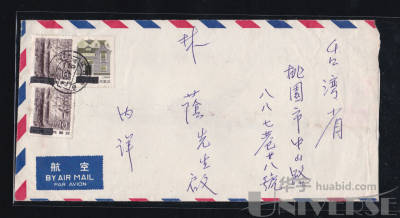 台湾省
桃園市中山路
八八七巷十八號
林
蔭先生啟
内詳
航空
BY AIR MAIL
PAR AVION
华宇 huabid.com
UNIVERSE